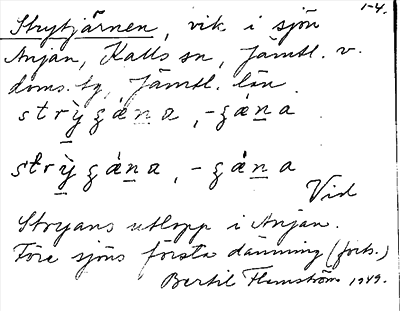 1-4.
Strytjärnen, vik i sjön
Anjan, Kalls sn, Jämtl. v.
doms. tg, Jämtl. län.
strỳgána, -gána
strỳgána, -gána
Vid
Stryans utlopp i Anjan.
Före sjöns första dämning (forts.)
Bertil Flemström 1949.